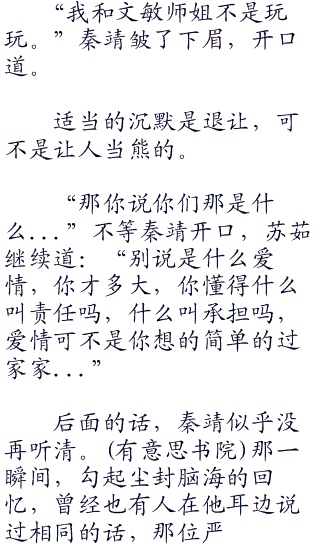 “我和文敏师姐不是玩
玩。”秦靖皱了下眉，开口
道。
适当的沉默是退让，可
不是让人当熊的。
“那你说你们那是什
么...”不等秦靖开口，苏茹
继续道：“别说是什么爱
情，你才多大，你懂得什么
叫责任吗，什么叫承担吗，
爱情可不是你想的简单的过
家家...”
后面的话，秦靖似乎没
再听清。(有意思书院)那一
瞬间，勾起尘封脑海的回
忆，曾经也有人在他耳边说
过相同的话，那位严